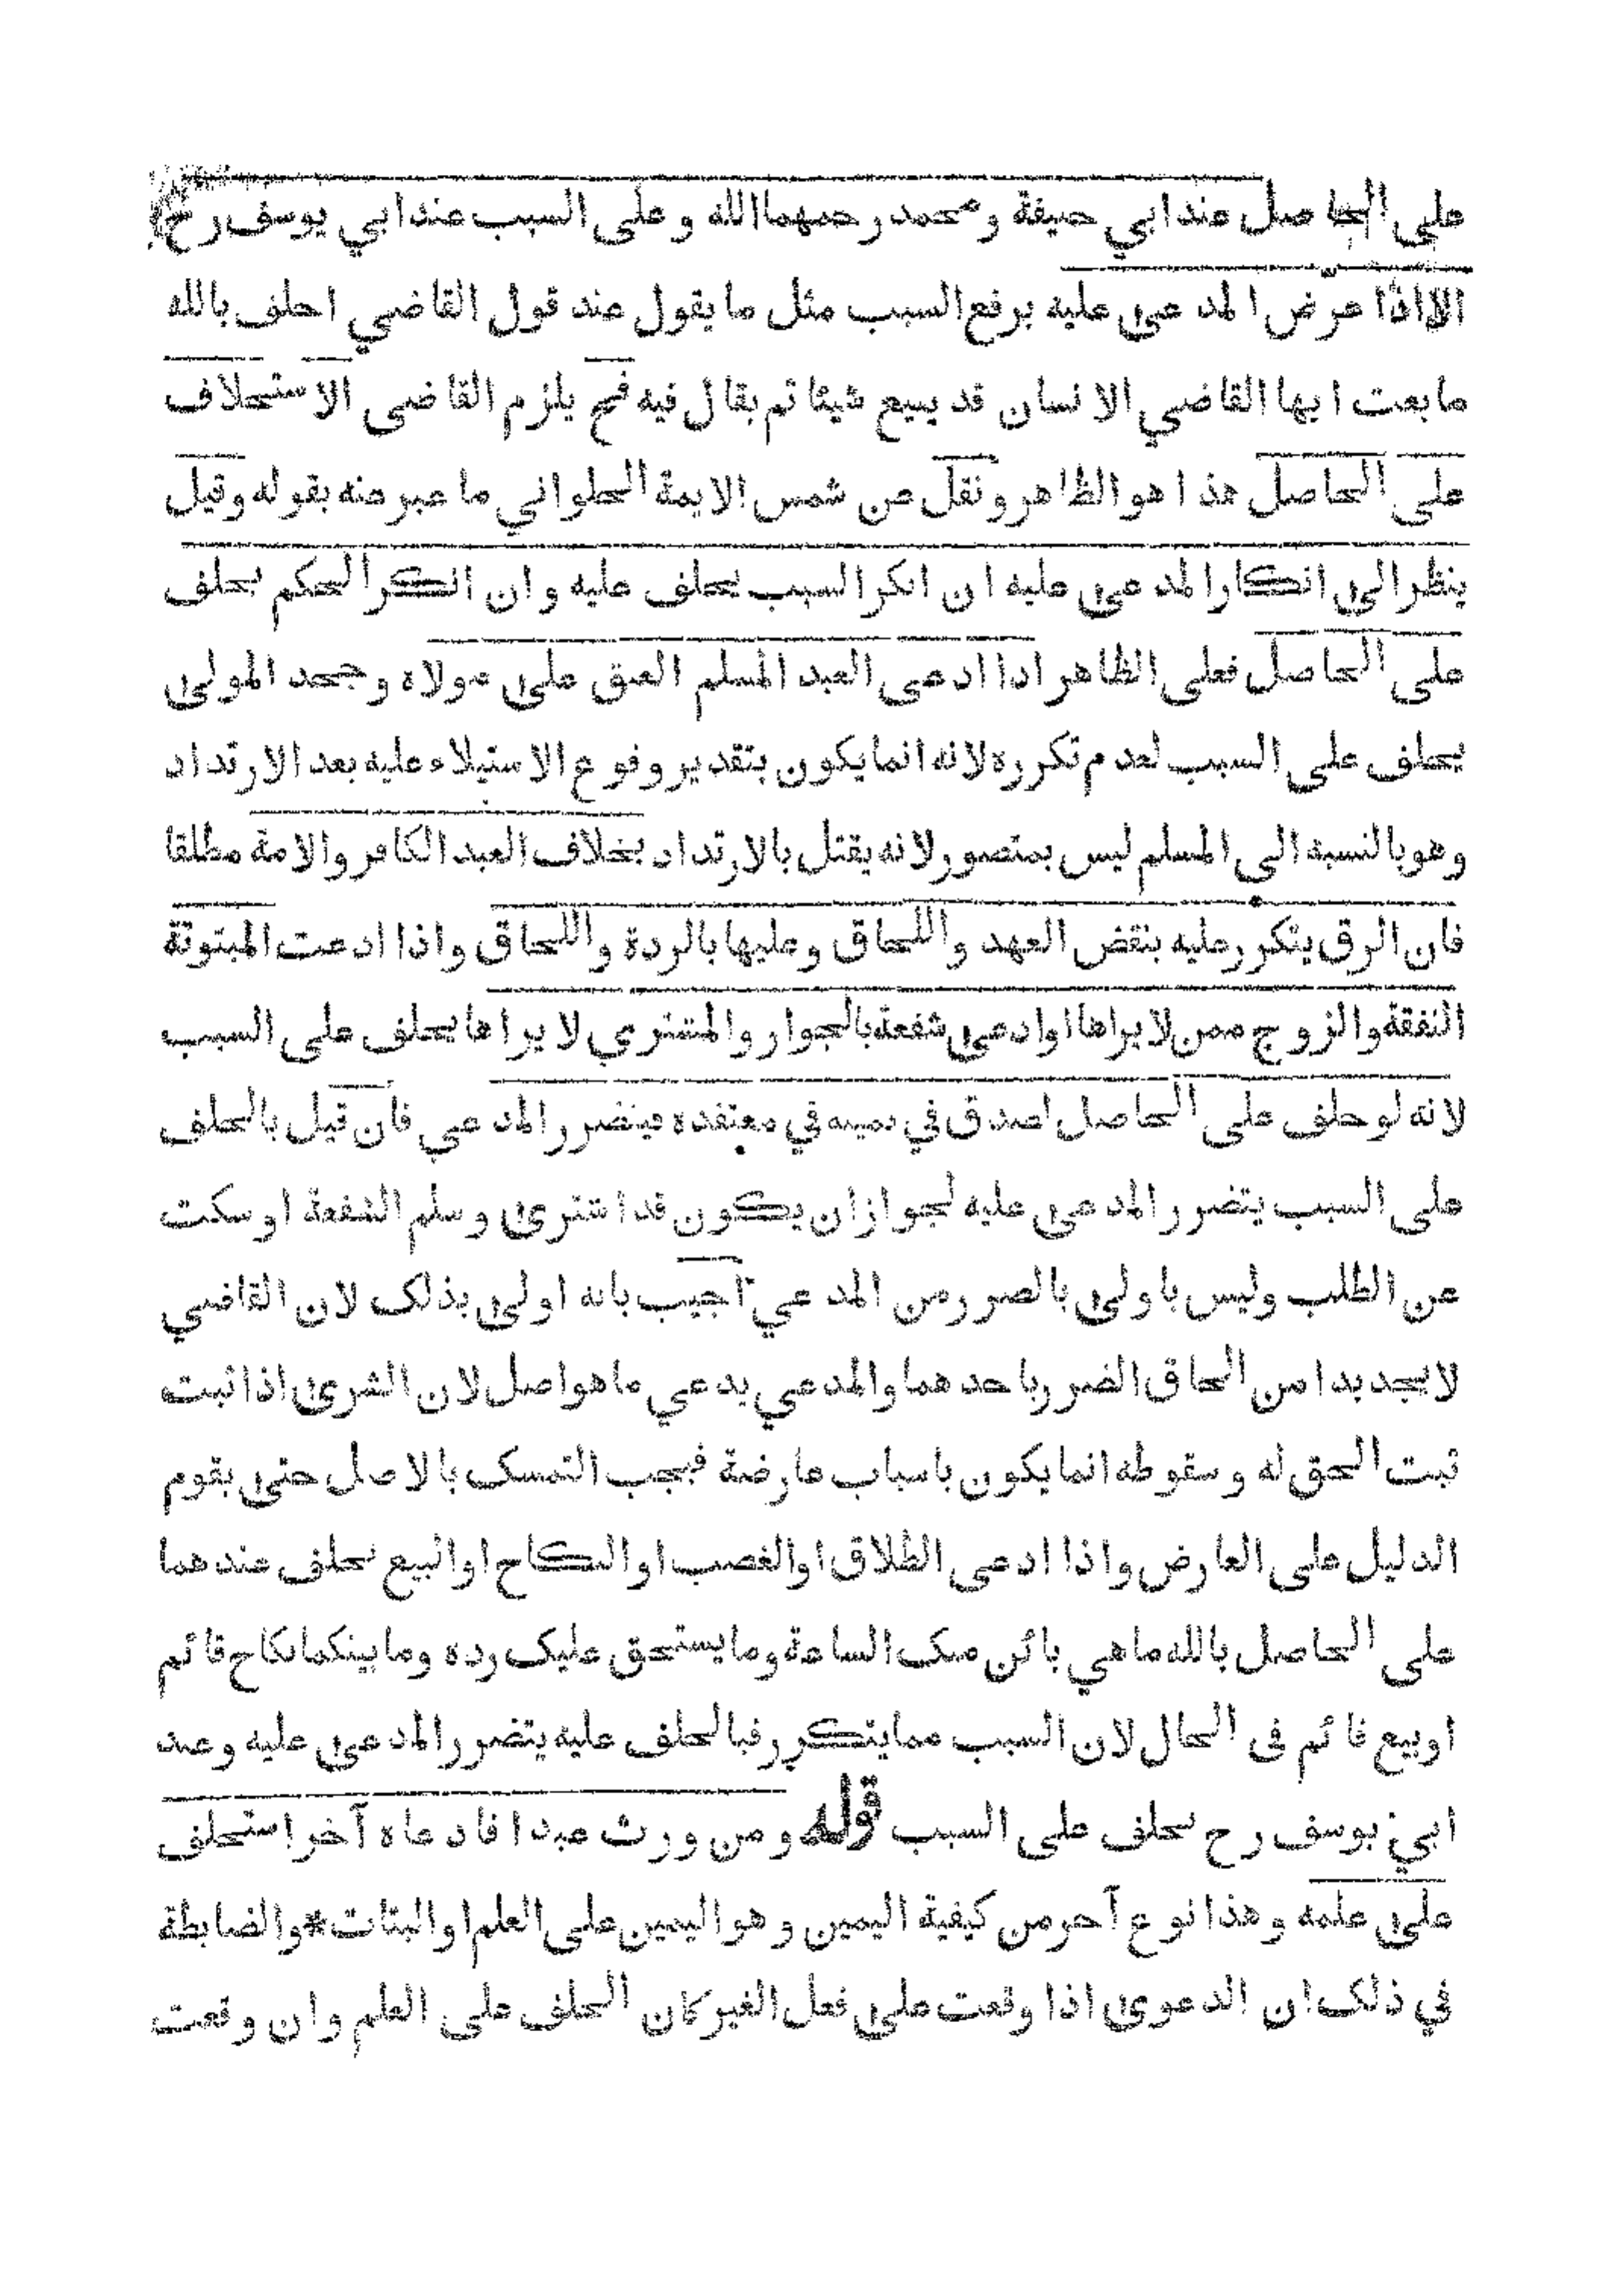 على الحاصل عند ابي حنيفة و محمد رحمهما الله و على السبب عند ابي يوسف رح
الا اذا عرض المدعى عليه برفع السبب مثل ما يقول عند قول القاضي احلف بالله
ما بعت ايها القاضي الانسان قد يبيع شيئا ثم يقال فيه فح يلزم القاضى الاستحلاف
على الحاصل هذا هو الظاهر و نقل عن شمس الايمة الحلواني ما عبر عنه بقوله و قيل
ينظر الى انكار المدعى عليه ان انكر السبب يحلف عليه و ان انكر الحكم يحلف
على الحاصل فعلى الظاهر اذا ادعى العبد المسلم العتق على مولاه و جحد المولى
يحلف على السبب لعدم تكرره لانه انما يكون بتقدير وقوع الاستيلاء عليه بعد الارتداد
وهو بالنسبة الى المسلم ليس بمتصور لانه يقتل بالارتداد بخلاف العبد الكافر والامة مطلقا
فان الرق يتكرر عليه بنقض العهد واللحاق وعليها بالردة واللحاق واذا ادعت المبتوتة
النفقة والزوج ممن لا يراها او ادعى شفعة بالجوار والمشتري لا يراها يحلف على السبب
لانه لو حلف على الحاصل لصدق في يمينه في معتقده فيتضرر المدعي فان قيل بالحلف
على السبب يتضرر المدعى عليه لجواز ان يكون قد اشترى و سلم الشفعة او سكت
عن الطلب وليس باولى بالضرر من المدعي اجيب بانه اولى بذلك لان القاضي
لا يجد بدا من الحاق الضرر باحدهما والمدعي يدعي ما هو اصل لان الشرى اذا ثبت
ثبت الحق له و سقوطه انما يكون باسباب عارضة فيجب التمسك بالاصل حتى يقوم
الدليل على العارض واذا ادعى الطلاق او الغصب او النكاح او البيع يحلف عندهما
على الحاصل بالله ما هي بائن منك الساعة وما يستحق عليك رده وما بينكما نكاح قائم
او بيع قائم فى الحال لان السبب مما يتكرر فبالحلف عليه يتضرر المدعى عليه وعند
ابي يوسف رح يحلف على السبب قوله و من ورث عبدا فادعاه آخر استحلف
على علمه و هذا نوع آخر من كيفية اليمين و هو اليمين على العلم او البتات * والضابطة
في ذلك ان الدعوى اذا وقعت على فعل الغير كان الحلف على العلم وان وقعت